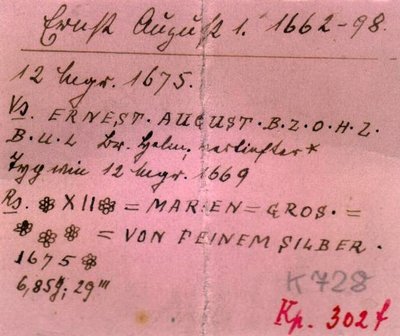 Ernst August 1. 1662-98.
12 Mgr. 1675.
Vs. ERNEST·AUGUST·B·Z·O·H·Z·
B·U·L Br. Helm, verziert *
Typ wie 12 Mgr. 1669
Rs. ❀ XII ❀ = MARIEN = GROS· =
❀ ❀ ❀ = VON FEINEM SILBER·
1675 ❀
6,85g; 29‴
K 728
Kp. 302 f